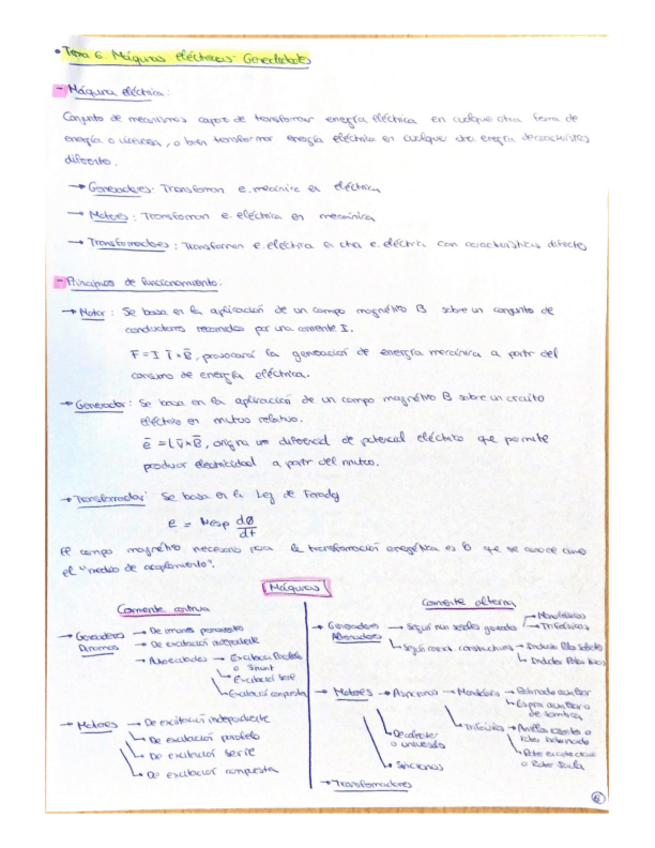 • Tema 6. Máquinas eléctricas. Generalidades
- Máquina eléctrica:
Conjunto de mecanismos capaz de transformar energía eléctrica en cualquier otra forma de
energía o viceversa, o bien transformar energía eléctrica en cualquier otra energía de características
diferente.
→ Generadores: Transforman e. mecánica en eléctrica
→ Motores: Transforman e. eléctrica en mecánica
→ Transformadores: Transforman e. eléctrica en otra e. eléctrica con características
- Principios de funcionamiento:
→ Motor: Se basa en la aplicación de un campo magnético B sobre un conjunto de
conductores recorridos por una corriente I.
F = I l × B, provocará la generación de energía mecánica a partir del
consumo de energía eléctrica.
→ Generador: Se basa en la aplicación de un campo magnético B sobre un circuito
eléctrico en relativo.
e = l v × B, origina un diferencial de potencial eléctrico que permite
producir electricidad a partir del
→ Transformador: Se basa en la Ley de Faraday
e = Nesp dØ/dt
El campo magnético necesario para la transformación energética es lo que se conoce como
el "medio de acoplamiento".
Máquinas
Corriente continua
→ Generadores Dinamos → De imanes permanentes
→ De excitación independiente
→ Autoexcitados → Excitación Paralelo o Shunt
→ Excitación Serie
→ Excitación compuesta
→ Motores → De excitación independiente
→ De excitación paralelo
→ De excitación serie
→ De excitación compuesta
Corriente alterna
→ Generadores Alternadores → Según num señales generadas → Monofásicos
→ Trifásicos
→ Según constructivas → Inductor Polos Salientes
→ Inductor Polos lisos
→ Motores → Asíncronos → Monofásico → auxiliar
→ Espira auxiliar o de sombra
→ Trifásico → Anillos rozantes o Rotor bobinado
→ Rotor o Rotor Jaula
→ De colector o universales
→ Síncronos
→ Transformadores
6